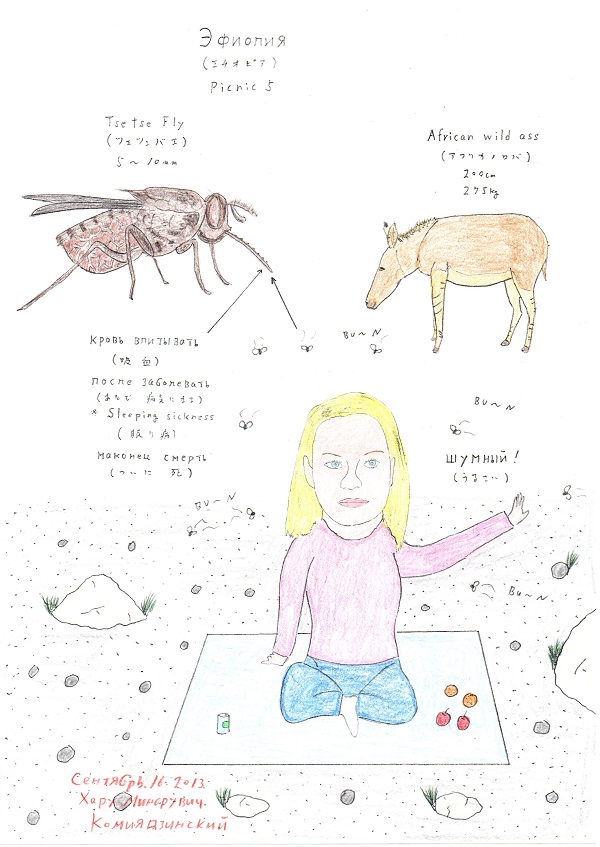 Эфиопия
(エチオピア)
Picnic 5
Tsetse Fly
(ツェツェバエ)
5～10mm
African wild ass
(アフリカノロバ)
200cm
275kg
кровь впитывать
(吸血)
после заболевать
(あとで 病気になる)
* Sleeping sickness
(眠り病)
наконец смерть
(ついに 死)
Bu～N
Bu～N
шумный!
(うるさい)
Bu～N
Bu～N
Сентябрь. 16. 2013.
Комиядзинский